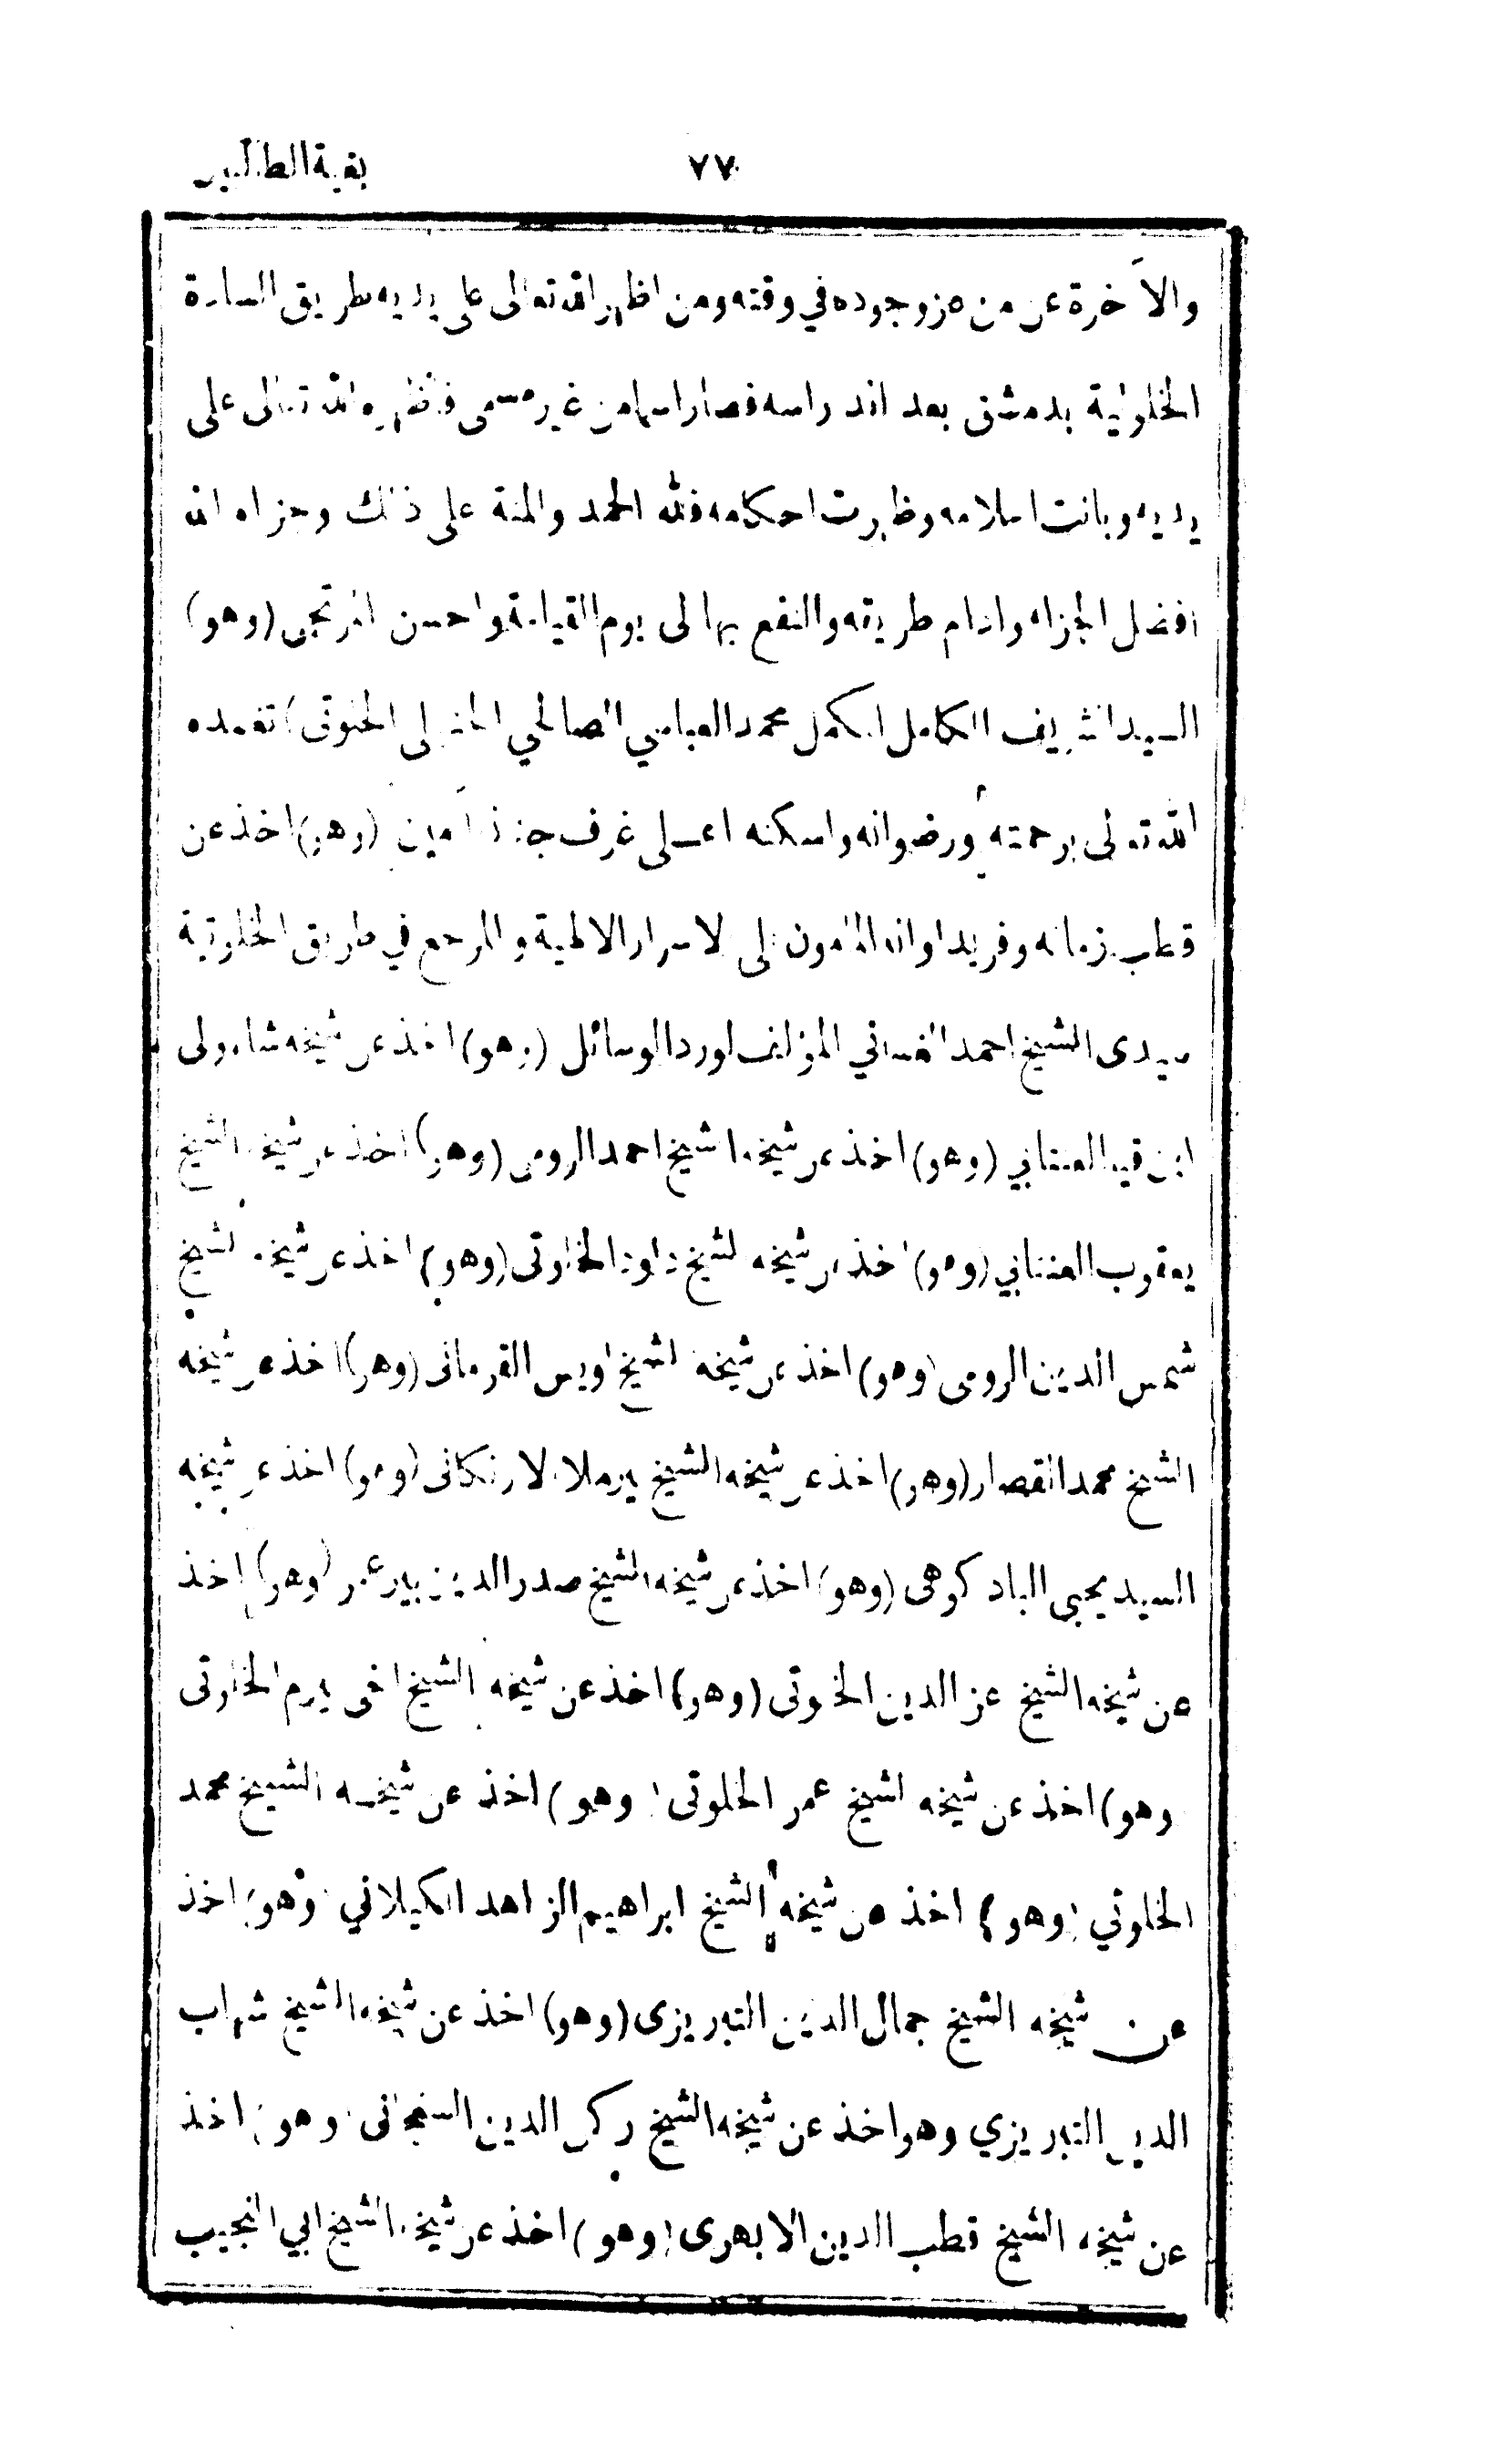 بغية الطالبين
٧٧
والآخرة عن من عز وجوده في وقته ومن اظهر الله تعالى على يديه طريق السادة
الخلوتية بدمشق بعد اندراسه فصار اسما من غير مسمى فاظهره الله تعالى على
يديه وبانت اعلامه وظهرت احكامه فلله الحمد والمنة على ذلك وجزاه الله
افضل الجزاء وادام طريقه والنفع بها لى يوم القيامة واحسن (وهو)
السيد الشريف الكامل المكمل محمد العباسي الصالحي الحنبلى الخلوتى) تغمده
الله تعالى برحمته ورضوانه واسكنه اعلى غرف جنته آمين (وهو) اخذ عن
قطب زمانه وفريد اوانه المامون على الاسرار الالهية والمرجع في طريق الخلوتية
سيدى الشيخ احمد العسالي المؤلف لورد الوسائل (وهو) اخذ عن شيخه شاه ولى
ابن العنتابي (وهو) اخذ عن شيخه الشيخ احمد الرومى (وهو) اخذ عن شيخه الشيخ
يعقوب العنتابي (وهو) اخذ عن شيخه الشيخ داود الخلوتى (وهو) اخذ عن شيخه الشيخ
شمس الدين الرومى (وهو) اخذ عن شيخه الشيخ اويس القرمانى (وهو) اخذ عن شيخه
الشيخ محمد القصار (وهو) اخذ عن شيخه الشيخ بيرملا الارنكانى (وهو) اخذ عن شيخه
السيد يحيى الباد كوهى (وهو) اخذ عن شيخه الشيخ صدر الدين بير عمر (وهو) اخذ
عن شيخه الشيخ عز الدين الخلوتى (وهو) اخذ عن شيخه الشيخ اخى بيرم الخلوتى
وهو) اخذ عن شيخه الشيخ عمر الخلوتى (وهو) اخذ عن شيخه الشيخ محمد
الخلوتي (وهو) اخذ عن شيخه الشيخ ابراهيم الزاهد الكيلاني (وهو) اخذ
عن شيخه الشيخ جمال الدين التبريزى (وهو) اخذ عن شيخه الشيخ شهاب
الدين التبريزي وهو اخذ عن شيخه الشيخ ركن الدين السنجانى (وهو) اخذ
عن شيخه الشيخ قطب الدين الابهرى (وهو) اخذ عن شيخه الشيخ ابي النجيب